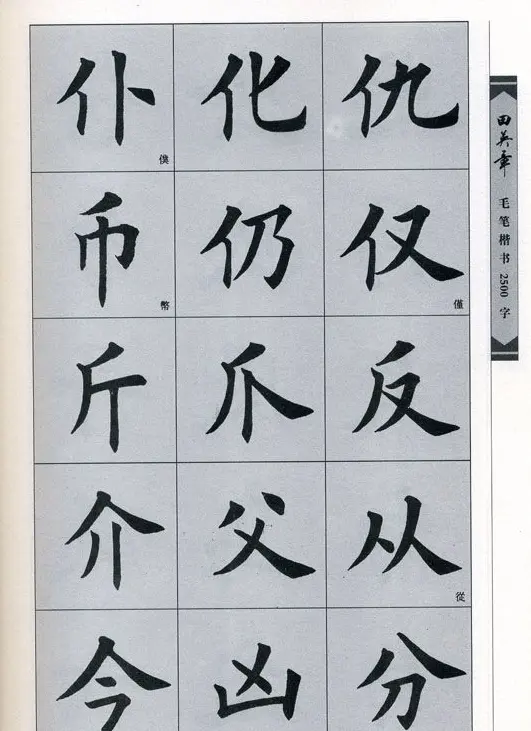 仆 僕 化 仇
币 幣 仍 仅 僅
斤 爪 反
介 父 从 從
今 凶 分
田英章
毛笔楷书2500字